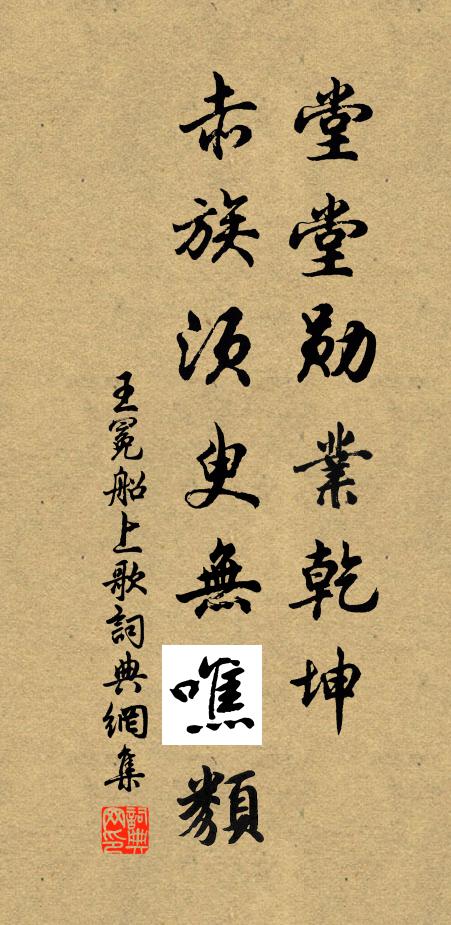 堂堂勛業乾坤
赤族須臾無噍類
王冕船上歌詞典網集
詞典網印